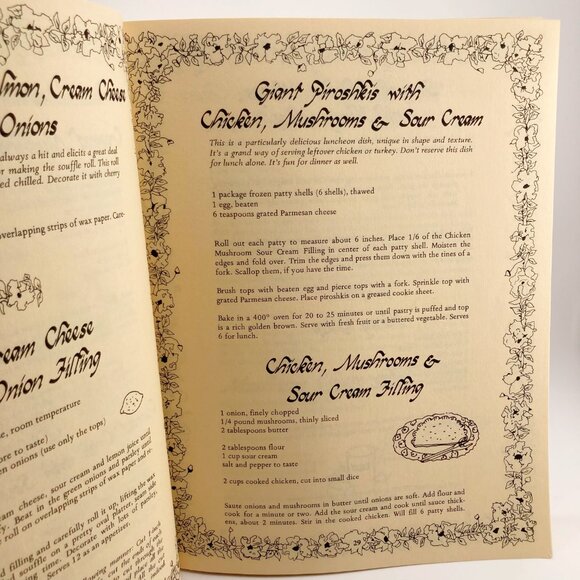 lmon, Cream Cheese
Onions
always a hit and elicits a great deal
r making the souffle roll. This roll
ed chilled. Decorate it with cherry
overlapping strips of wax paper. Care-
ream Cheese
Onion Filling
e, room temperature
ore to taste)
en onions (use only the tops)
am cheese, sour cream and lemon juice until
fy. Beat in the green onions and parsley until
roll on overlapping strips of wax paper and re-
d filling and carefully roll it up, lifting the wax
souffle on a pretty oval platter.
on top. Decorate with lots of parsley.
Serves 12 as an appetizer.
29
Giant Piroshkis with
Chicken, Mushrooms & Sour Cream
This is a particularly delicious luncheon dish, unique in shape and texture.
It's a grand way of serving leftover chicken or turkey. Don't reserve this dish
for lunch alone. It's fun for dinner as well.
1 package frozen patty shells (6 shells), thawed
1 egg, beaten
6 teaspoons grated Parmesan cheese
Roll out each patty to measure about 6 inches. Place 1/6 of the Chicken
Mushroom Sour Cream Filling in center of each patty shell. Moisten the
edges and fold over. Trim the edges and press them down with the tines of a
fork. Scallop them, if you have the time.
Brush tops with beaten egg and pierce tops with a fork. Sprinkle top with
grated Parmesan cheese. Place piroshkis on a greased cookie sheet.
Bake in a 400° oven for 20 to 25 minutes or until pastry is puffed and top
is a rich golden brown. Serve with fresh fruit or a buttered vegetable. Serves
6 for lunch.
Chicken, Mushrooms &
Sour Cream Filling
1 onion, finely chopped
1/4 pound mushrooms, thinly sliced
2 tablespoons butter
2 tablespoons flour
1 cup sour cream
salt and pepper to taste
2 cups cooked chicken, cut into small dice
Saute onions and mushrooms in butter until onions are soft. Add flour and
cook for a minute or two. Add the sour cream and cook until sauce thick-
ens, about 2 minutes. Stir in the cooked chicken. Will fill 6 patty shells.
29